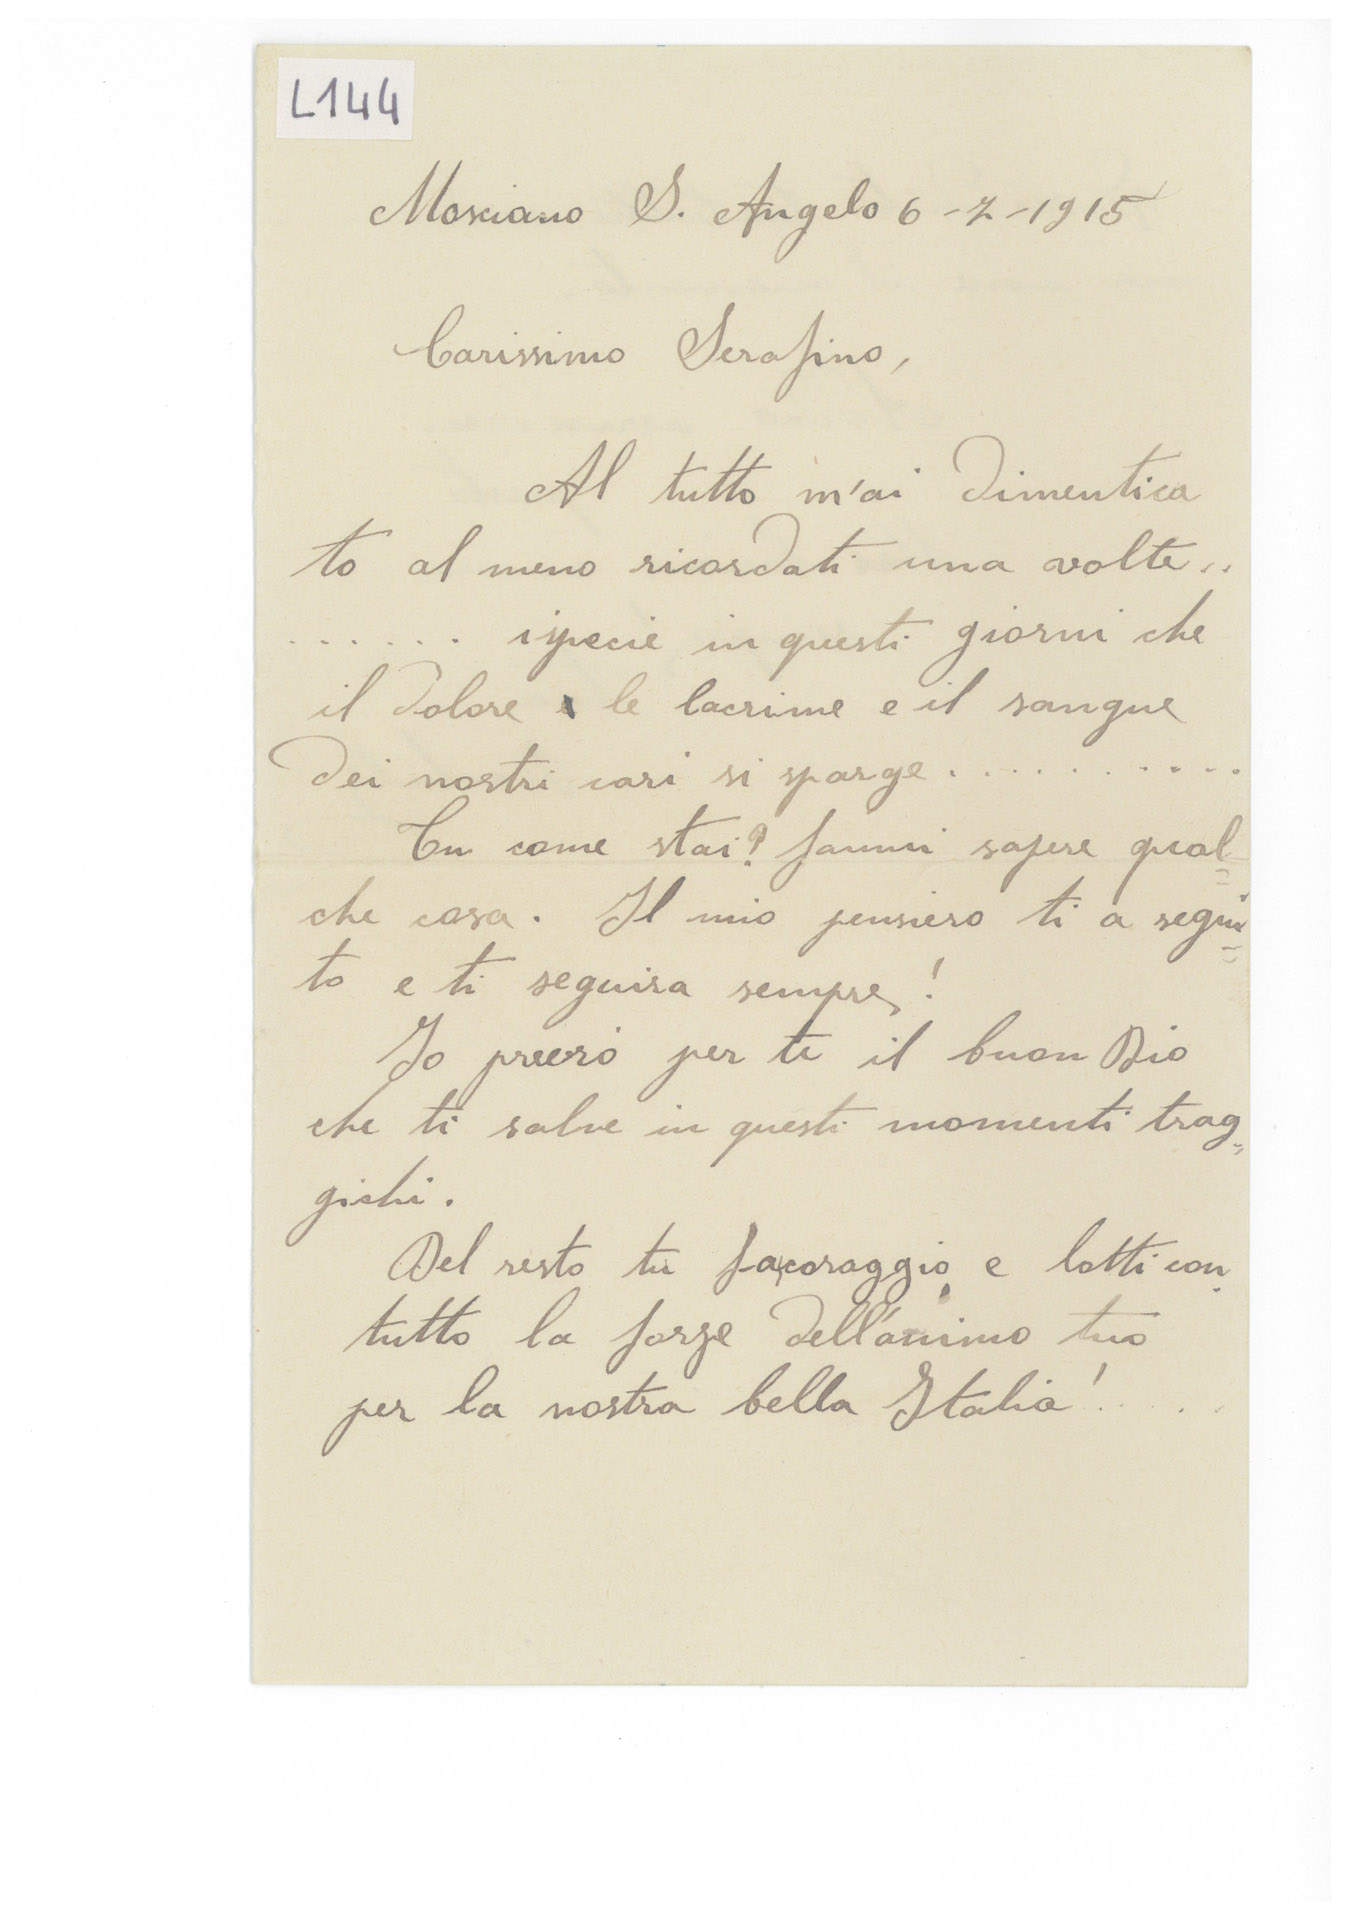 L144
Mosciano S. Angelo 6-7-1915
Carissimo Serafino,
Al tutto m'ai dimentica
to al meno ricordati una volte..
...... ispecie in questi giorni che
il dolore e le lacrime e il sangue
dei nostri cari si sparge............
Tu come stai? fammi sapere qual=
che cosa. Il mio pensiero ti a segui=
to e ti seguira sempre!
Io preerò per te il buon Dio
che ti salve in questi momenti trag=
gichi.
Del resto tu fa coraggio e lotti con
tutto la forze dell'animo tuo
per la nostra bella Italia!....